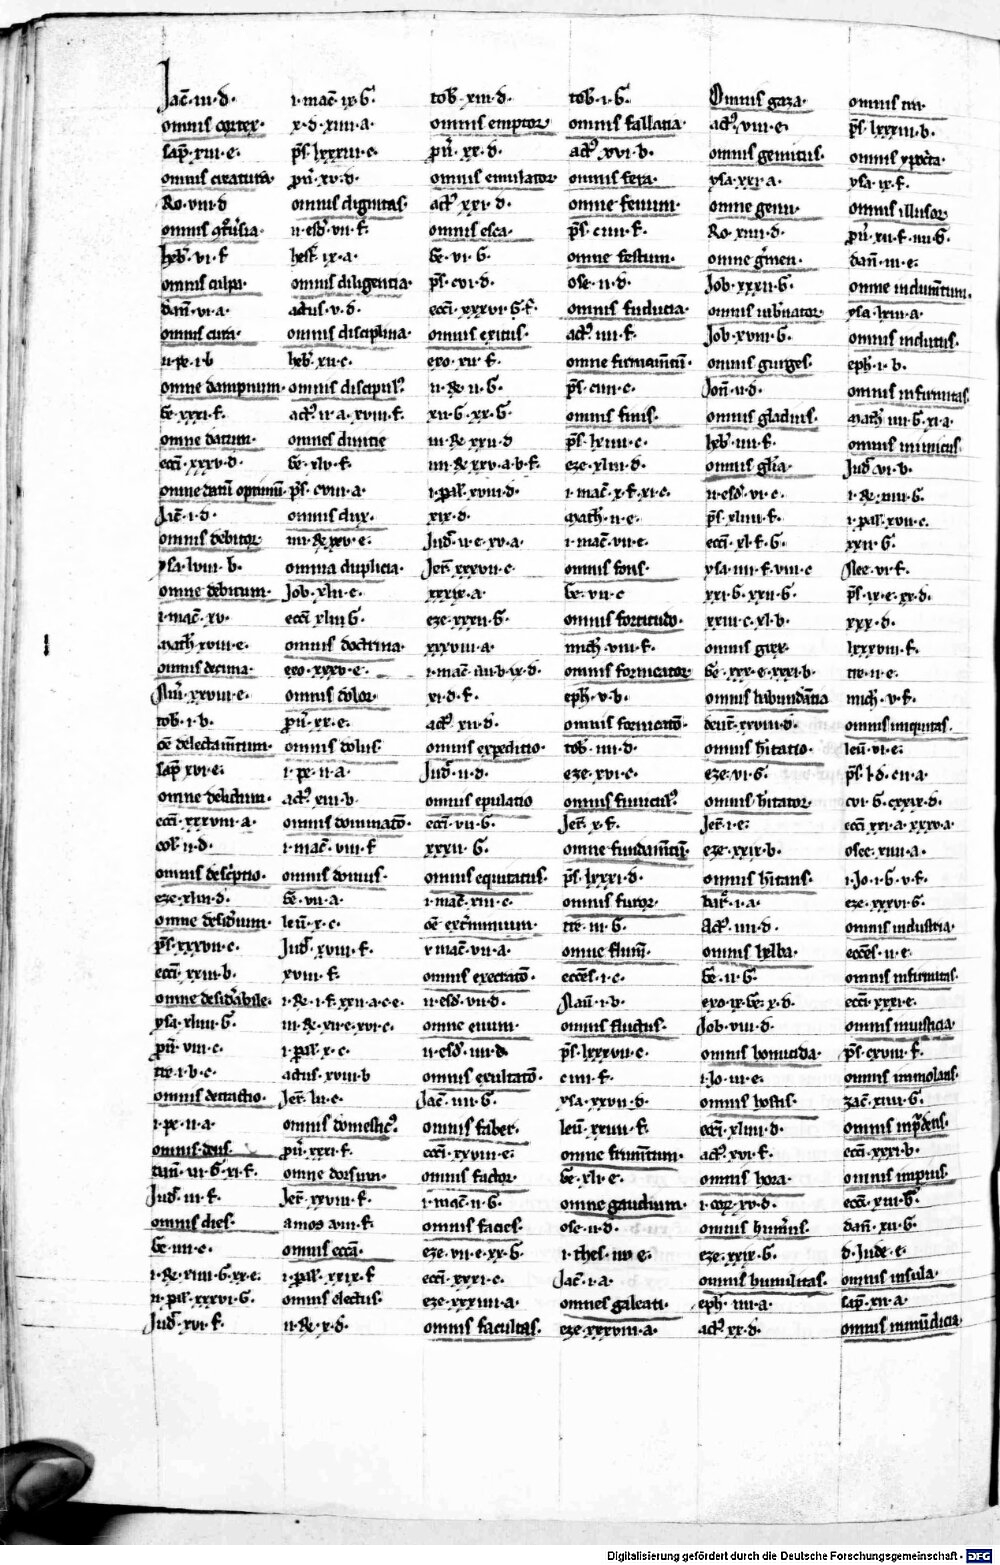 Jac̄·iii·d·
omnis cortex·
sap̄·xiii·e·
omnis creatura·
Ro·viii·d
heb̄·vi·f
omnis culpa·
dan̄·vi·a·
omnis cura·
ii·pe·i·b
omne dampnum·
Ge·xxxi·f·
omne datum·
ecci·xxxv·d·
omne datū optimū·
Jac̄·i·d·
omnis debitor·
ysa·lviii·b·
omne debitum·
i·mac̄·xv·
math·xviii·e·
omnis decima·
Nūi·xxviii·e·
tob·i·b·
oē delectamētum·
sap̄ xvi·e·
omne delictum·
ecci·xxxviii·a·
col·ii·d·
omnis desc̄ptio·
eze·xliii·d·
omne desid̄ium·
ps̄·xxxvii·c·
ecci·xxiii·b·
omne desid̄abile·
ysa·xliiii·G·
pū·viii·c·
tre·i·b·c·
omnis detractio·
i·pe·ii·a·
omnis deus·
dan̄·vi·G·xi·f·
Jud̄·iii·f·
omnis dies·
Ge·iiii·c·
i·Re·xiiii·G·xx·e·
ii·pal·xxxvi·G·
Jud̄·xvi·f·
i·mac̄·ix·G·
x·d·xiiii·a·
ps̄·lxxxiii·c·
pū·xv·d·
omnis dignitas·
ii·esd̄·vii·f·
hest̄·ix·a·
omnis diligentia·
actus·v·d·
omnis disciplina·
heb̄·xii·c·
omnis discipul9·
act9·ii·a·xviii·f·
omnes diuitie
Ge·xlv·f·
ps̄·cviii·a·
omnis dux·
iiii·Re·xxv·e·
omnia duplicia·
Job·xlii·c·
ecci·xliii·G·
omnis doctrina·
exo·xxxv·e·
omnis dolor·
pū·xx·e·
omnis dolus·
i·pe·ii·a·
act9·xiii·b·
omnis dominatō·
i·mac̄·viii·f
omnis domus·
Ge·vii·a·
leui·x·c·
Jud̄·xviii·f·
xviii·f·
i·Re·i·f·xxii·a·c·e·
iii·Re·xii·e·xvi·c·
i·pal·x·c·
actus·xviii·b
Jer̄·lii·c·
omnis domestic9·
pū·xxxi·f·
omne dorsum·
Jer̄·xxviii·f·
amos viii·f·
omnis ecca·
i·pal·xxix·f
omnis electus·
ii·Re·x·d·
tob·xiii·d·
omnis emptor
pū·xx·d·
omnis emulator
act9·xxi·d·
omnis esca·
Ge·vi·G·
ps̄·cvi·d·
ecci·xxxvi·G·f·
omnis exitus·
exo·xii·f·
ii·Re·ii·G·
xii·G·xx·G·
iii·Re·xxii·d
iiii·Re·xxv·a·b·f·
i·pal·xviii·d·
xix·d·
Jud̄·ii·e·xv·a·
Jer̄·xxxvii·c·
xxxix·a·
eze·xxxii·G·
xxxviii·a·
i·mac̄·iiii·b·ix·d·
xi·d·f·
act9·xii·d·
omnis expeditio·
Jud̄·ii·d·
omnis epulatio
ecci·vii·G·
xxxii·G·
omnis equitatus·
i·mac̄·xiii·c·
oē ext̄minium·
i·mac̄·vii·a·
omnis execratō·
ii·esd̄·vii·d·
omne euum·
ii·esd̄·iiii·d·
omnis exultatō·
Jac̄·iiii·G·
omnis faber·
ecci·xxviii·e·
omnis factor·
i·mac̄·ii·G·
omnis facies·
eze·vii·e·xx·G·
ecci·xxxi·c·
eze·xxxiiii·a·
omnis facultas·
tob·i·G·
omnis fallatia·
act9·xvi·b·
omnis fera·
omne fenum·
ps̄·ciiii·f·
omne festum·
ose·ii·d·
omnis fiducia·
act9·iiii·f·
omne firmamētū·
ps̄·ciiii·c·
omnis finis·
ps̄·lxiiii·c·
eze·xliii·d·
i·mac̄·x·f·xi·c·
math·ii·e·
i·mac̄·vii·e·
omnis fons·
Ge·vii·c
omnis fortitudo·
mich·viii·f·
omnis fornicator
eph·v·b·
omnis fornicatō·
tob·iiii·d·
eze·xvi·c·
omnis funicul9·
Jer̄·x·f·
omne fundamētū·
ps̄·lxxxi·d·
omnis furor·
tre·iii·G·
omne flum̄·
ecces·i·c·
Naū·i·b·
omnis fluctus·
ps̄·lxxxvii·c·
ciiii·f·
ysa·xxvii·d·
leui·xxiiii·f·
omne frumētum·
Ge·xli·e·
omne gaudium·
ose·ii·d·
i·thes·iii·e·
Jac̄·i·a·
omnes galeati·
eze·xxxviii·a·
Omnis gaza·
act9·viii·e·
omnis gemitus·
ysa·xxi·a·
omne genu·
Ro·xiiii·d·
omne ḡmen·
Job·xxxii·G·
omnis gub̄nator·
Job·xviii·G·
omnis gurges·
Jon̄·ii·d·
omnis gladius·
heb̄·iiii·f·
omnis glia·
ii·esd̄·vi·c·
ps̄·xliiii·f·
ecci·xl·f·G·
ysa·iiii·f·viii·c
xxi·G·xxii·G·
xxiii·c·xl·b·
omnis grex·
Ge·xxx·e·xxxi·b·
omnis habundātia
deut̄·xxviii·d·
omnis h̄itatio·
eze·vi·G·
omnis h̄itator·
Jer̄·i·e·
eze·xxix·b·
omnis h̄itans·
bar̄·i·a·
Act9·iiii·d·
omnis herba·
Ge·ii·G·
exo·ix·Ge·x·d·
Job·viii·d·
omnis homicida·
i·Jo·iii·e·
omnis hostis·
ecci·xliiii·d·
act9·xvi·f·
omnis hora·
i·cor·xv·d·
omnis hum̄us·
eze·xxix·G·
omnis humilitas·
eph·iiii·a·
act9·xx·d·
ps̄·lxxxiii·b·
omnis ypoc̄ta·
ysa·ix·f·
omnis illusor
pū·xii·f·iiii·G·
dan̄·iii·e·
omne indumētum·
ysa·lxiii·a·
omnis inclitus·
eph·i·b·
omnis infirmitas·
math·iiii·G·xi·a·
omnis inimicus
Jud̄·vi·b·
i·Re·xiiii·G·
i·pal·xvii·c·
xxii·G·
Nee·vi·f·
ps̄·ix·e·xx·d·
xxx·d·
lxxxviii·f·
tre·ii·e·
mich·v·f·
omnis iniquitas·
leui·vi·e·
ps̄·l·d·cii·a·
cvi·G·cxxix·d·
ecci·xxi·a·xxxv·a·
osee·xiii·a·
i·Jo·i·G·v·f·
eze·xxxvi·G·
omnis industria·
ecces·ii·e·
omnis infirmitas·
ecci·xxxi·e·
omnis iniusticia·
ps̄·cxviii·f·
omnis immolans·
zac̄·xiiii·G·
omnis inp̄dens·
ecci·xxxi·b·
omnis impius·
ecci·xiii·G·
dan̄·xii·G·
d·Jude·e·
omnis insula·
sap̄·xii·a·
omnis inmūdicia·
Digitalisierung gefördert durch die Deutsche Forschungsgemeinschaft - DFG